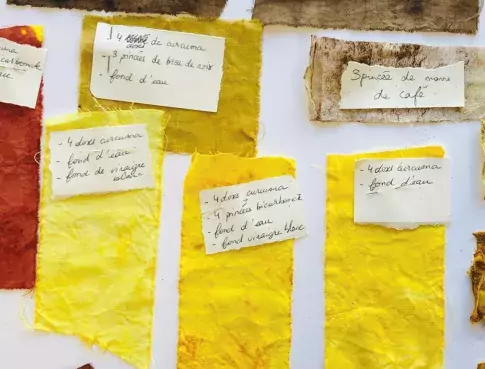 curcuma
bicarbonate
blanc
4 doses de curcuma
3 pincées de bise de
- fond d'eau
5 pincées de marre
de café
- 4 doses curcuma
- fond d'eau
- fond de vinaigre
blanc
- 4 doses curcuma
- 4 pincées bicarbonate
- fond d'eau
- fond vinaigre blanc
- 4 doses curcuma
- fond d'eau